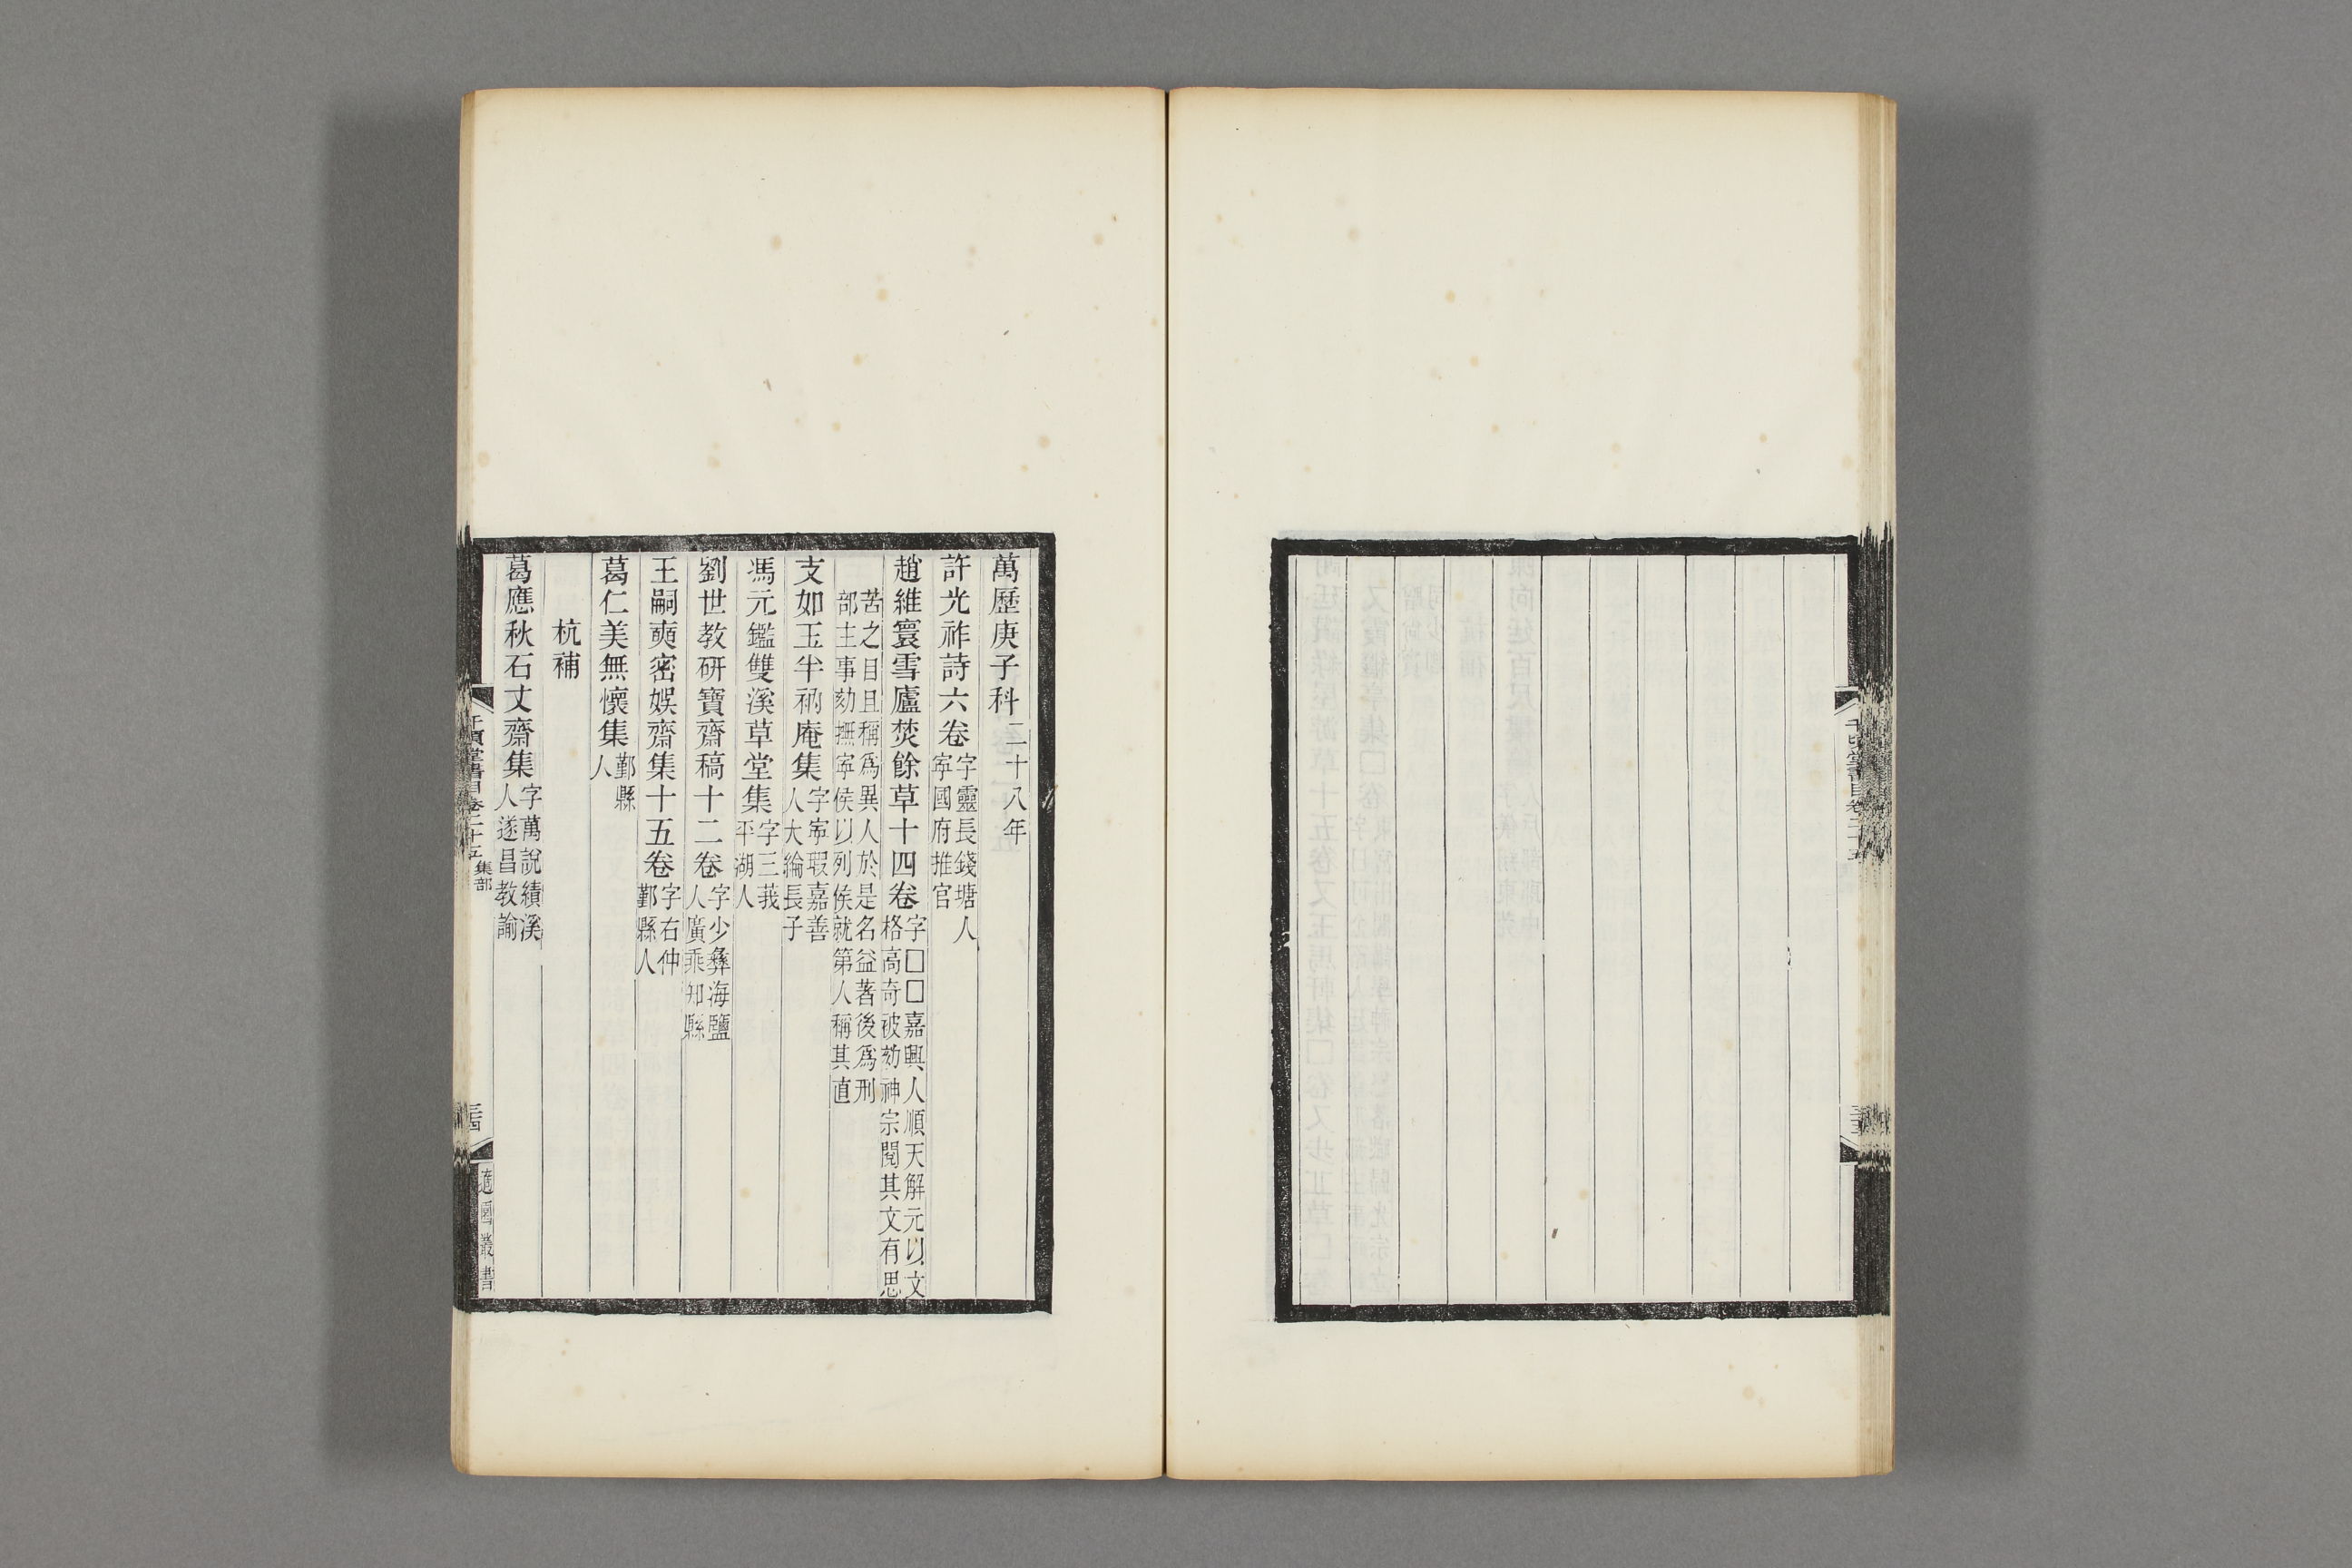 萬歷庚子科二十八年
許光祚詩六卷字靈長錢塘人寧國府推官
趙維寰雪廬焚餘草十四卷字□□嘉興人順天解元以文格高奇被劾神宗閱其文有思
苦之目且稱爲異人於是名益著後爲刑部主事劾撫寧侯以列侯就第人稱其直
支如玉半衲庵集字寧瑕嘉善人大綸長子
馮元鑑雙溪草堂集字三莪平湖人
劉世教研寶齋稿十二卷字少彝海鹽人廣乘知縣
王嗣奭密娛齋集十五卷字右仲鄞縣人
葛仁美無懷集鄞縣人
杭補
葛應秋石丈齋集字萬說績溪人遂昌教諭
千頃堂書目卷二十五 集部
三十四
適園叢書
千頃堂書目卷二十五